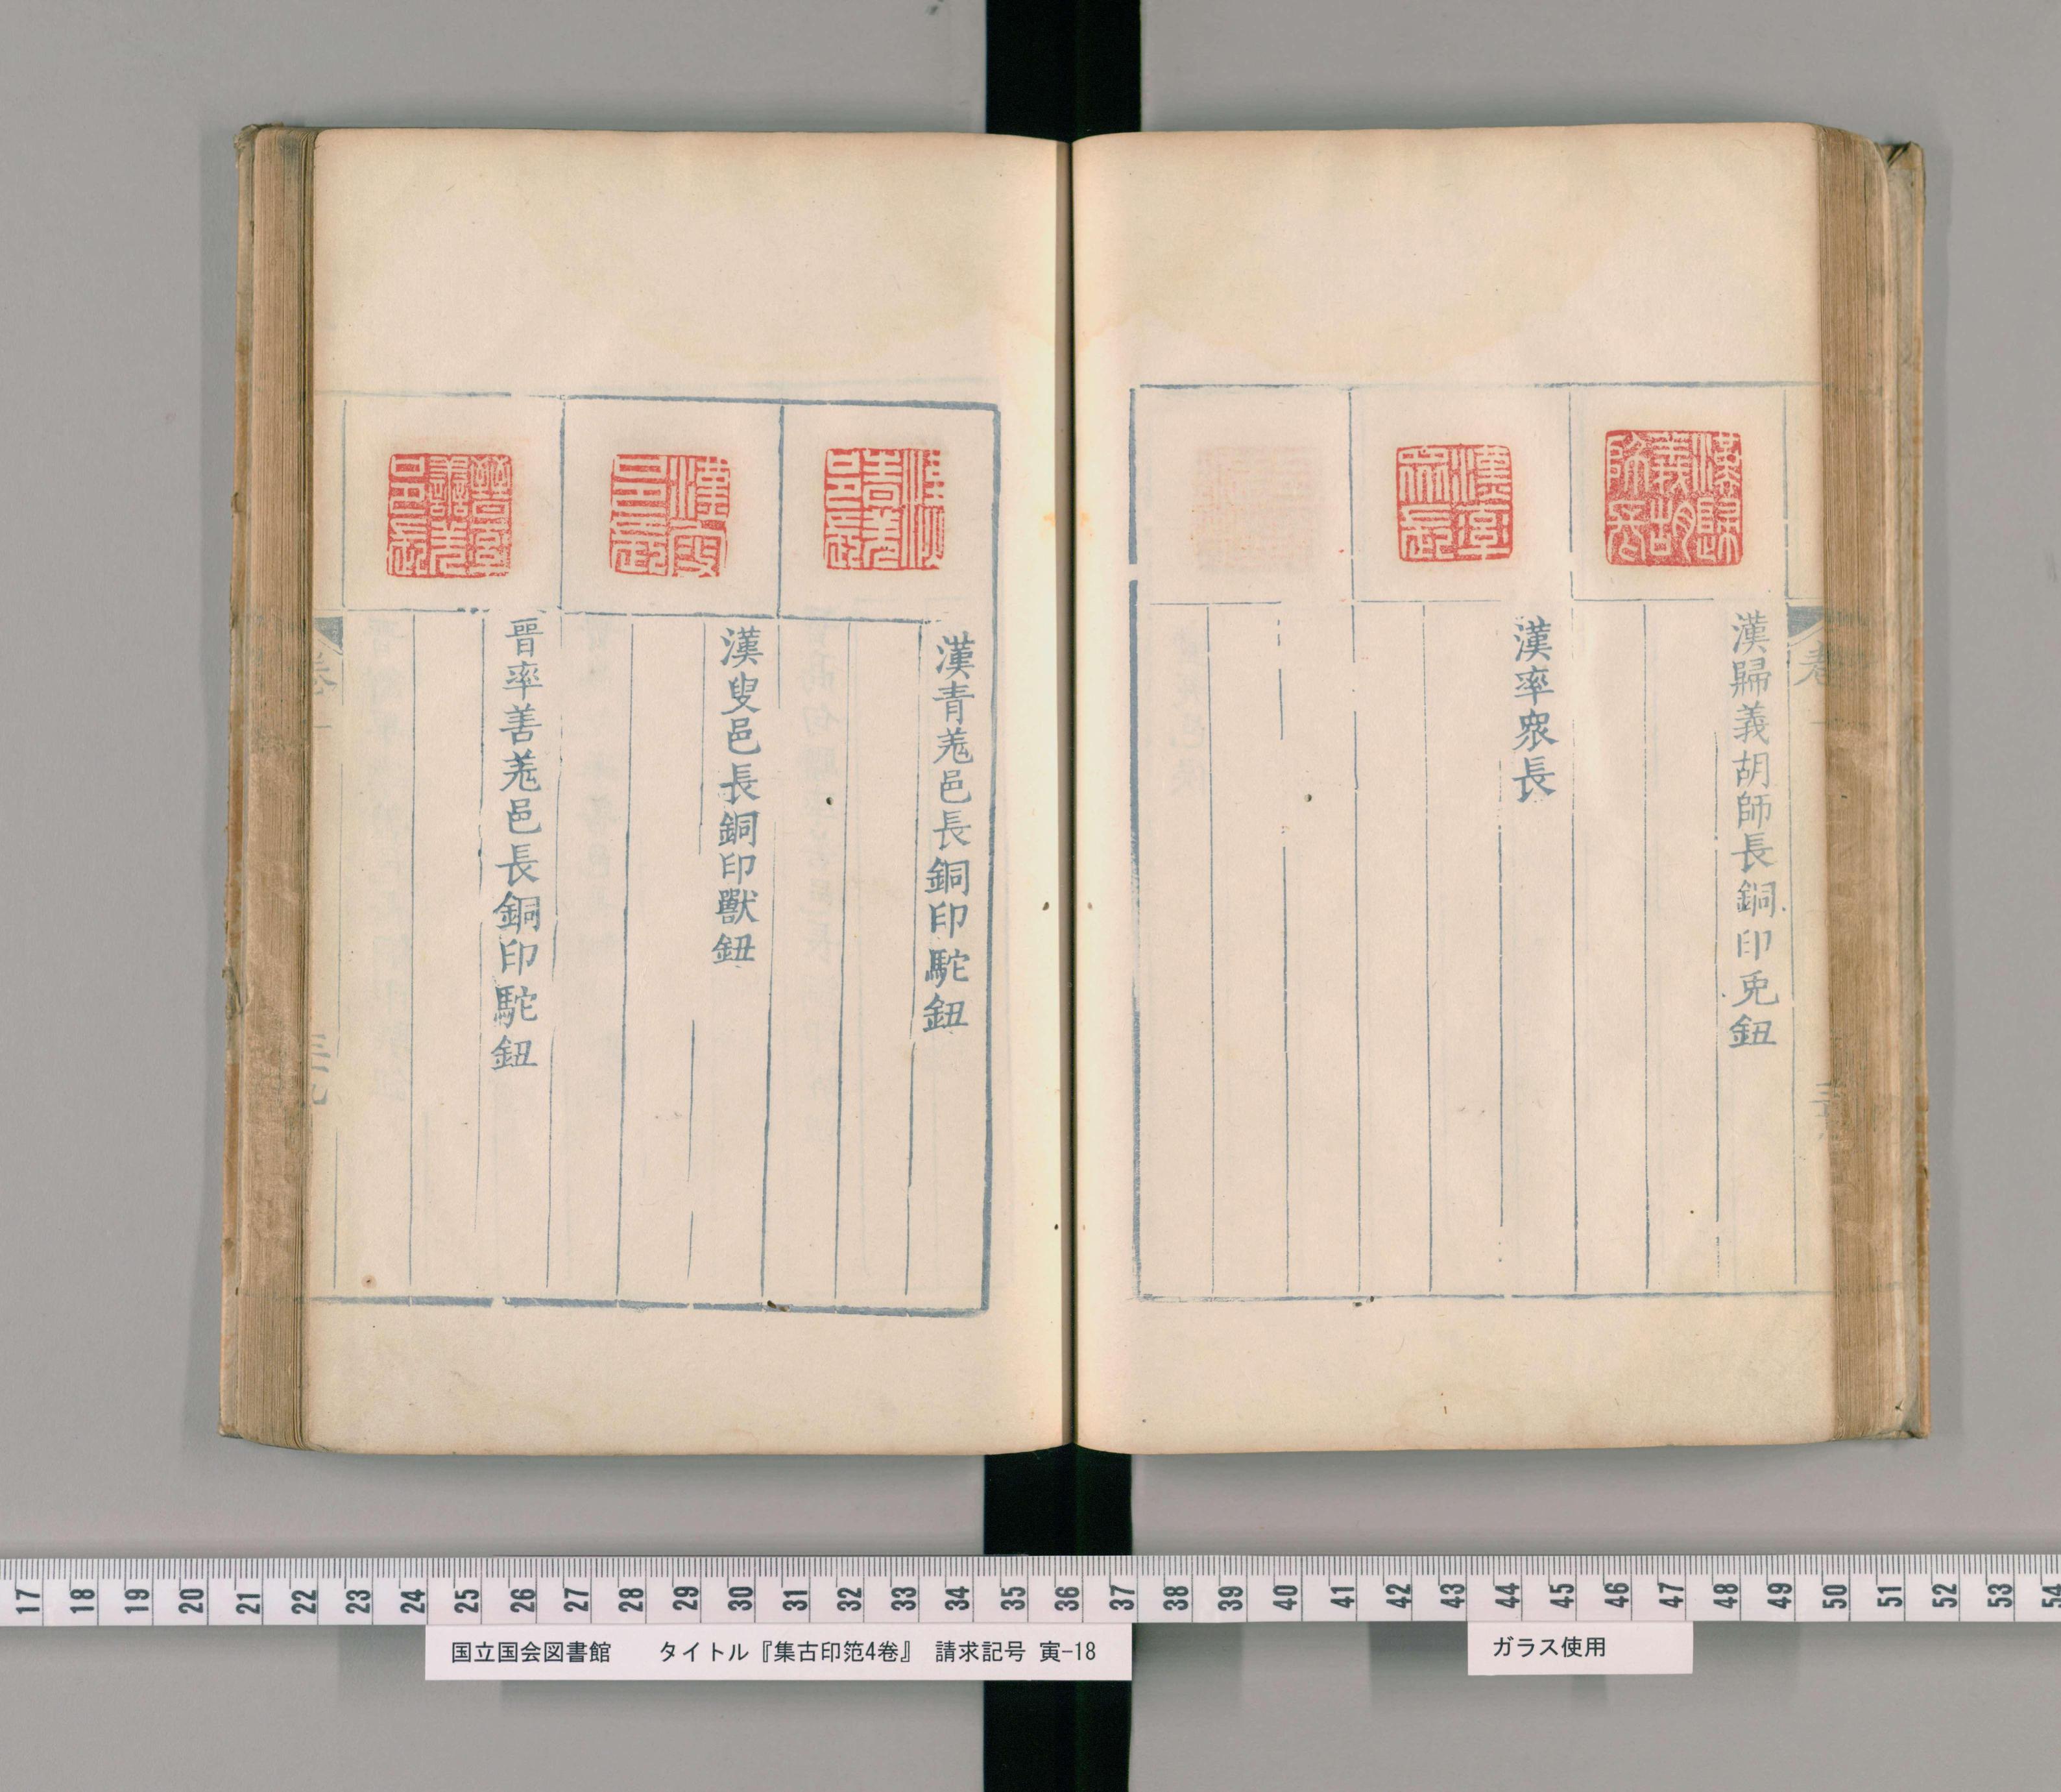 漢歸義胡師長銅印兎鈕
漢率衆長
漢青羌邑長銅印駝鈕
漢叟邑長銅印獸鈕
晉率善羌邑長銅印駝鈕
17 18 19 20 21 22 23 24 25 26 27 28 29 30 31 32 33 34 35 36 37 38 39 40 41 42 43 44 45 46 47 48 49 50 51 52 53 54
国立国会図書館 タイトル『集古印笵4卷』 請求記号 寅-18
ガラス使用